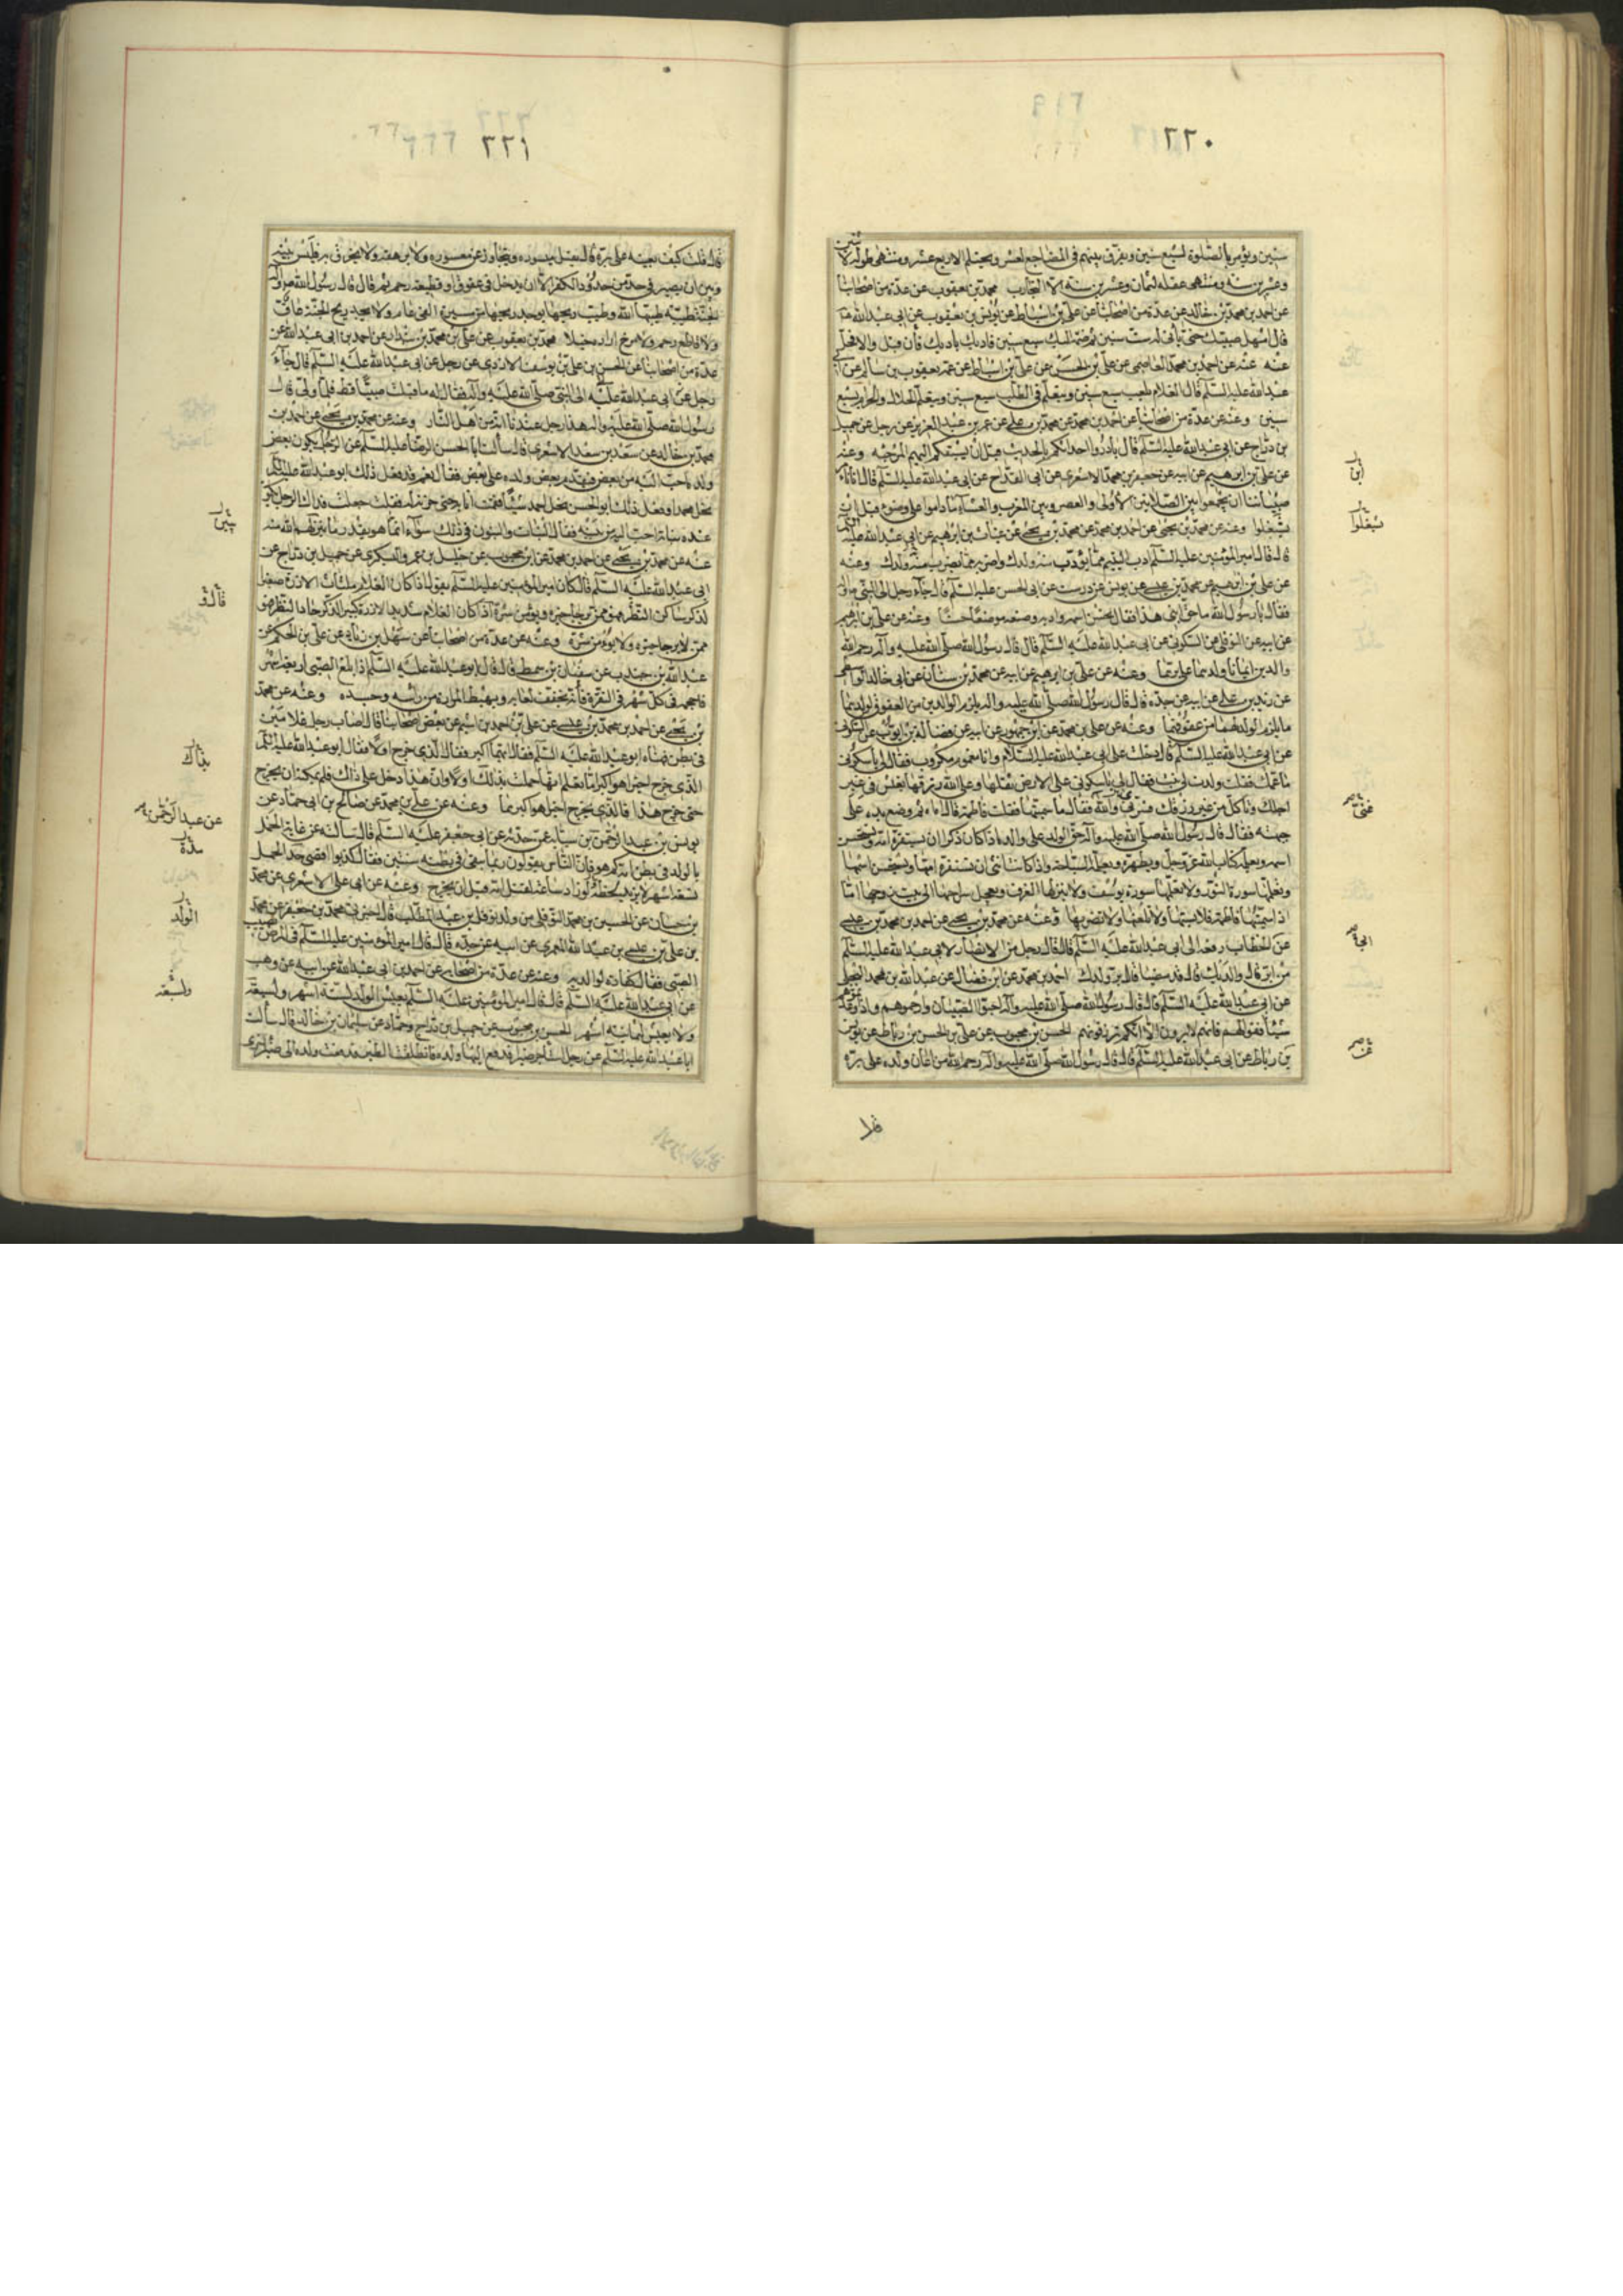 ٢٢٠
سنين ويؤمر بالصلوة لسبع سنين ويفرق بينهم في المضاجع لعشر ويحتلم لاربع عشر ومنتهى طوله لاثنتين
وعشرين سنه ومنتهى عقله لثمان وعشرين سنه الا التجارب محمد بن يعقوب عن عدة من اصحابنا
عن احمد بن محمد بن خالد عن عدة من اصحابنا عن علي بن اسباط عن يونس بن يعقوب عن ابي عبد الله ع
قال امهل صبيك حتى يأتي له ست سنين ثم ضمه اليك سبع سنين فادبه بادبك فان قبل والا فخل
عنه عنه عن احمد بن محمد العاصمي عن علي بن الحسن عن علي بن اسباط عن عمه يعقوب بن سالم عن ابي
عبد الله عليه السلم قال الغلام يلعب سبع سنين ويتعلم في الكتاب سبع سنين ويتعلم الحلال والحرام سبع
سنين وعنه عن عدة من اصحابنا عن احمد بن محمد عن محمد بن علي عن عمر بن عبد العزيز عن رجل عن جميل
بن دراج عن ابي عبد الله عليه السلم قال بادروا احداثكم بالحديث قبل ان يسبقكم اليهم المرجئه وعنه
عن علي بن ابرهيم عن ابيه عن جعفر بن محمد الاشعري عن ابي القداح عن ابي عبد الله عليه السلم قال انا نأمر
صبياننا ان يجمعوا بين الصلاتين الاولى والعصر وبين المغرب والعشاء ما داموا على وضوء قبل ان
يشتغلوا وعنه عن محمد بن يحيى عن احمد بن محمد عن محمد بن يحيى عن غياث بن ابرهيم عن ابي عبد الله عليه السلم
قال قال امير المؤمنين عليه السلم ادب اليتيم مما تؤدب منه ولدك واضربه مما تضرب منه ولدك وعنه
عن علي بن ابرهيم عن محمد بن عيسى عن يونس عن درست عن ابي الحسن عليه السلم قال جاء رجل الى النبي ص واله
فقال يا رسول الله ما حق ابني هذا فقال تحسن اسمه وادبه وضعه موضعا حسنا وعنه عن علي بن ابرهيم
عن ابيه عن النوفلي عن السكوني عن ابي عبد الله عليه السلم قال قال رسول الله صلى الله عليه وآله رحم الله
والدين اعانا ولدهما على برهما وعنه عن علي بن ابرهيم عن ابيه عن محمد بن سنان عن ابي خالد الواسطي
عن زيد بن علي عن ابيه عن جده قال قال رسول الله صلى الله عليه واله يلزم الوالدين من العقوق لولدهما
ما يلزم الولد لهما من عقوقهما وعنه عن علي بن محمد عن ابن جمهور عن ابيه عن فضالة بن ايوب عن السكوني
عن ابي عبد الله عليه السلم قال دخلت على ابي عبد الله عليه السلام وانا مغموم مكروب فقال لي يا سكوني
ما غمك فقلت ولدت لي ابنه فقال لي يا سكوني على الارض ثقلها وعلى الله رزقها تعيش في غير
اجلك وتأكل من غير رزقك فسرى والله فقال ما سميتها فقلت فاطمه قال اه اه ثم وضع يده على
جبهته فقال قال رسول الله صلى الله عليه وآله حق الولد على والده اذا كان ذكرا ان يستفره امه ويستحسن
اسمه ويعلمه كتاب الله عز وجل ويطهره ويعلمه السباحه واذا كانت انثى ان يستفره امها ويستحسن اسمها
ويعلمها سورة النور ولا يعلمها سورة يوسف ولا ينزلها الغرف ويعجل سراحها الى بيت زوجها اما
اذا سميتها فاطمة فلا تسبها ولا تلعنها ولا تضربها وعنه عن محمد بن يحيى عن احمد بن محمد بن عيسى
عن الخطاب رفعه الى ابي عبد الله عليه السلم قال قال رجل من الانصار لابي عبد الله عليه السلم
من ابر قال والديك قال قد مضيا قال بر ولدك احمد بن محمد عن ابن فضال عن عبد الله بن محمد البجلي
عن ابي عبد الله عليه السلم قال قال رسول الله صلى الله عليه وآله احبوا الصبيان وارحموهم واذا وعدتموهم
شيئا ففوا لهم فانهم لا يرون الا انكم ترزقونهم الحسن بن محبوب عن علي بن الحسن بن رباط عن يونس
بن رباط عن ابي عبد الله عليه السلم قال قال رسول الله صلى الله عليه وآله رحم الله من اعان ولده على بره
ابن
يشغلوا
عني
قال
٢٢١
قال قلت كيف يعينه على بره قال يقبل ميسوره ويتجاوز عن معسوره ولا يرهقه ولا يخرق به فليس بينه
وبين ان يصير في حد من حدود الكفر الا ان يدخل في عقوق او قطيعة رحم ثم قال قال رسول الله ص واله
الجنة طيبه طيبها الله وطيب ريحها يوجد ريحها من مسيرة الفي عام ولا يجد ريح الجنة عاق
ولا قاطع رحم ولا مرخ ازاره خيلا محمد بن يعقوب عن علي بن محمد بن بندار عن احمد بن ابي عبد الله عن
عدة من اصحابنا عن الحسن بن علي بن يوسف الازدي عن رجل عن ابي عبد الله عليه السلم قال جاء
رجل عن ابي عبد الله عليه الى النبي صلى الله عليه وآله فقال له ما قبلت صبيا قط فلما ولى قال
رسول الله صلى الله عليه واله هذا رجل عندنا انه من اهل النار وعنه عن محمد بن يحيى عن احمد بن
محمد بن خالد عن سعد بن سعد الاشعري قال سألت ابا الحسن الرضا عليه السلم عن الرجل يكون بعض
ولده احب اليه من بعض فيقدم بعض ولده على بعض فقال نعم قد فعل ذلك ابو عبد الله عليه السلم
نحل محمدا وفعل ذلك ابو الحسن نحل احمد شيئا فقمت انا به حتى حزته له فقلت جعلت فداك الرجل يكون
عنده بناته احب اليه من بنيه فقال البنات والبنون في ذلك سواء انما هو بقدر ما ينزلهم الله منه
عنه عن محمد بن يحيى عن احمد بن محمد عن ابن محبوب عن خليل بن عمرو اليشكري عن جميل بن دراج عن
ابي عبد الله عليه السلم قال كان امير المؤمنين عليه السلم يقول اذا كان الغلام ملتاث الازرة صغير
الذكر ساكن النظر فهو ممن يرجى خيره ويؤمن شره اذا كان الغلام شديد الازرة كبير الذكر حاد النظر فهو
ممن لا يرجى خيره ولا يؤمن شره وعنه عن عدة من اصحابنا عن سهل بن زياد عن علي بن الحكم عن
عبد الله بن جندب عن سفيان بن السمط قال قال ابو عبد الله عليه السلم اذا بلغ الصبي اربعة اشهر
فاحجمه في كل شهر في النقرة فانه يخفف لعابه ويهبط المرارة من رأسه وجسده وعنه عن محمد
بن يحيى عن احمد بن محمد بن عيسى عن علي بن احمد بن اشيم عن بعض اصحابنا قال اصاب رجل غلامين
في بطن فهناه ابو عبد الله عليه السلم فقال ايهما اكبر فقال الذي خرج اولا فقال ابو عبد الله عليه السلم
الذي خرج اخيرا هو اكبر اما تعلم انها حملت بذاك اولا وان هذا دخل على ذاك فلم يمكنه ان يخرج
حتى خرج هذا فالذي يخرج اخيرا هو اكبرهما وعنه عن علي بن محمد عن صالح بن ابي حماد عن
يونس بن عبد الرحمن بن سيابة عمن حدثه عن ابي جعفر عليه السلم قال سألته عن غاية الحمل
بالولد في بطن امه كم هو فان الناس يقولون ربما بقي في بطنه سنتين فقال كذبوا اقصى حد الحمل
تسعة اشهر لا يزيد لحظة لو زاد ساعة لقتل امه قبل ان يخرج وعنه عن ابي علي الاشعري عن محمد
بن حسان عن الحسين بن محمد النوفلي من ولد نوفل بن عبد المطلب قال اخبرني محمد بن جعفر عن محمد
بن علي بن عيسى بن عبد الله العمري عن ابيه عن جده قال قال امير المؤمنين عليه السلم في المرض يصيب
الصبي فقال كفارة لوالديه وعنه عن عدة من اصحابه عن احمد بن ابي عبد الله عن ابيه عن وهب
عن ابي عبد الله عليه السلم قال قال امير المؤمنين عليه السلم يعيش الولد لستة اشهر ولسبعة
ولا يعيش لثمانية اشهر الحسن بن محبوب عن جميل بن دراج وحماد عن سليمان بن خالد قال سألت
ابا عبد الله عليه السلم عن رجل استأجر ظئرا فدفع اليها ولده فانطلقت الظئر فدفعت ولده الى ظئر اخرى
بنين
بذاك
عن عبد الرحمن
الولد
ولتسعة